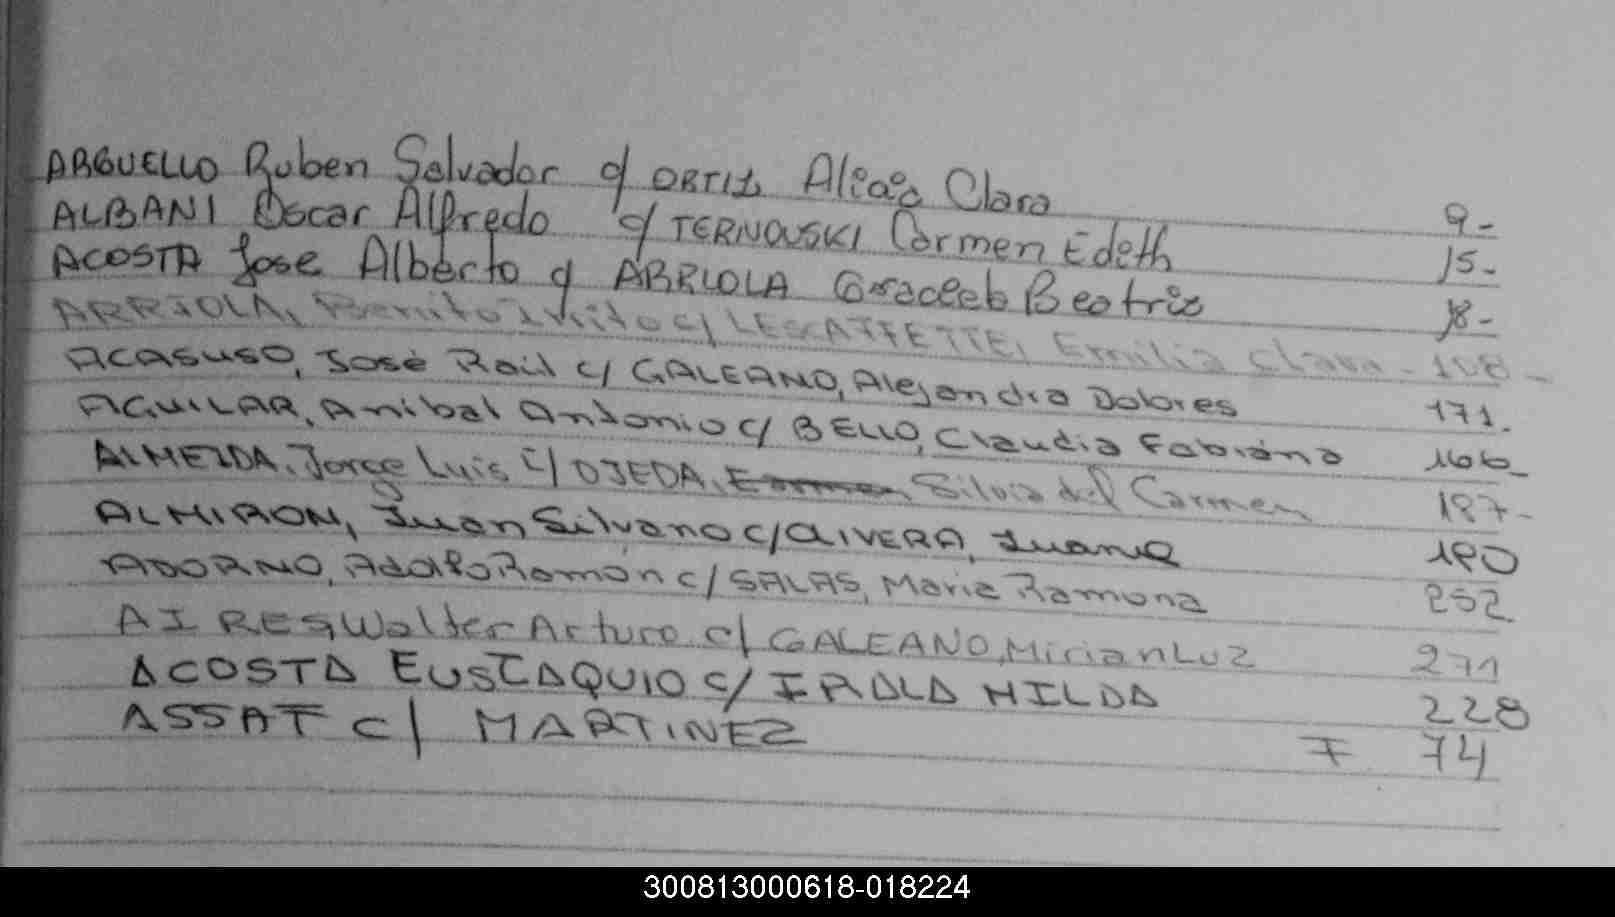 ARGUELLO Ruben Salvador c/ ORTIZ Alicia Clara 9-
ALBANI Oscar Alfredo c/ TERNOUSKI Carmen Edeth 15-
ACOSTA Jose Alberto c/ ARRIOLA Beatriz 18-
ARRIOLA, Benito c/ Emilia Clara - 108-
ACASUSO, José Raúl c/ GALEANO, Alejandra Dolores 171.
AGUILAR, Anibal Antonio c/ BELLO, Claudia Fabiána 166-
ALMEIDA, Jorge Luis c/ OJEDA, Silvia del Carmen 187-
ALMIRON, Juan Silvano c/ OLIVERA, Juana 190
ADORNO, Adolfo Ramon c/ SALAS, Maria Ramona 252.
AIRES, Walter Arturo c/ GALEANO, Mirian Luz 271
ACOSTA EUSTAQUIO c/ IRALA HILDA 228
ASSAT c/ MARTINEZ F 74
300813000618-018224